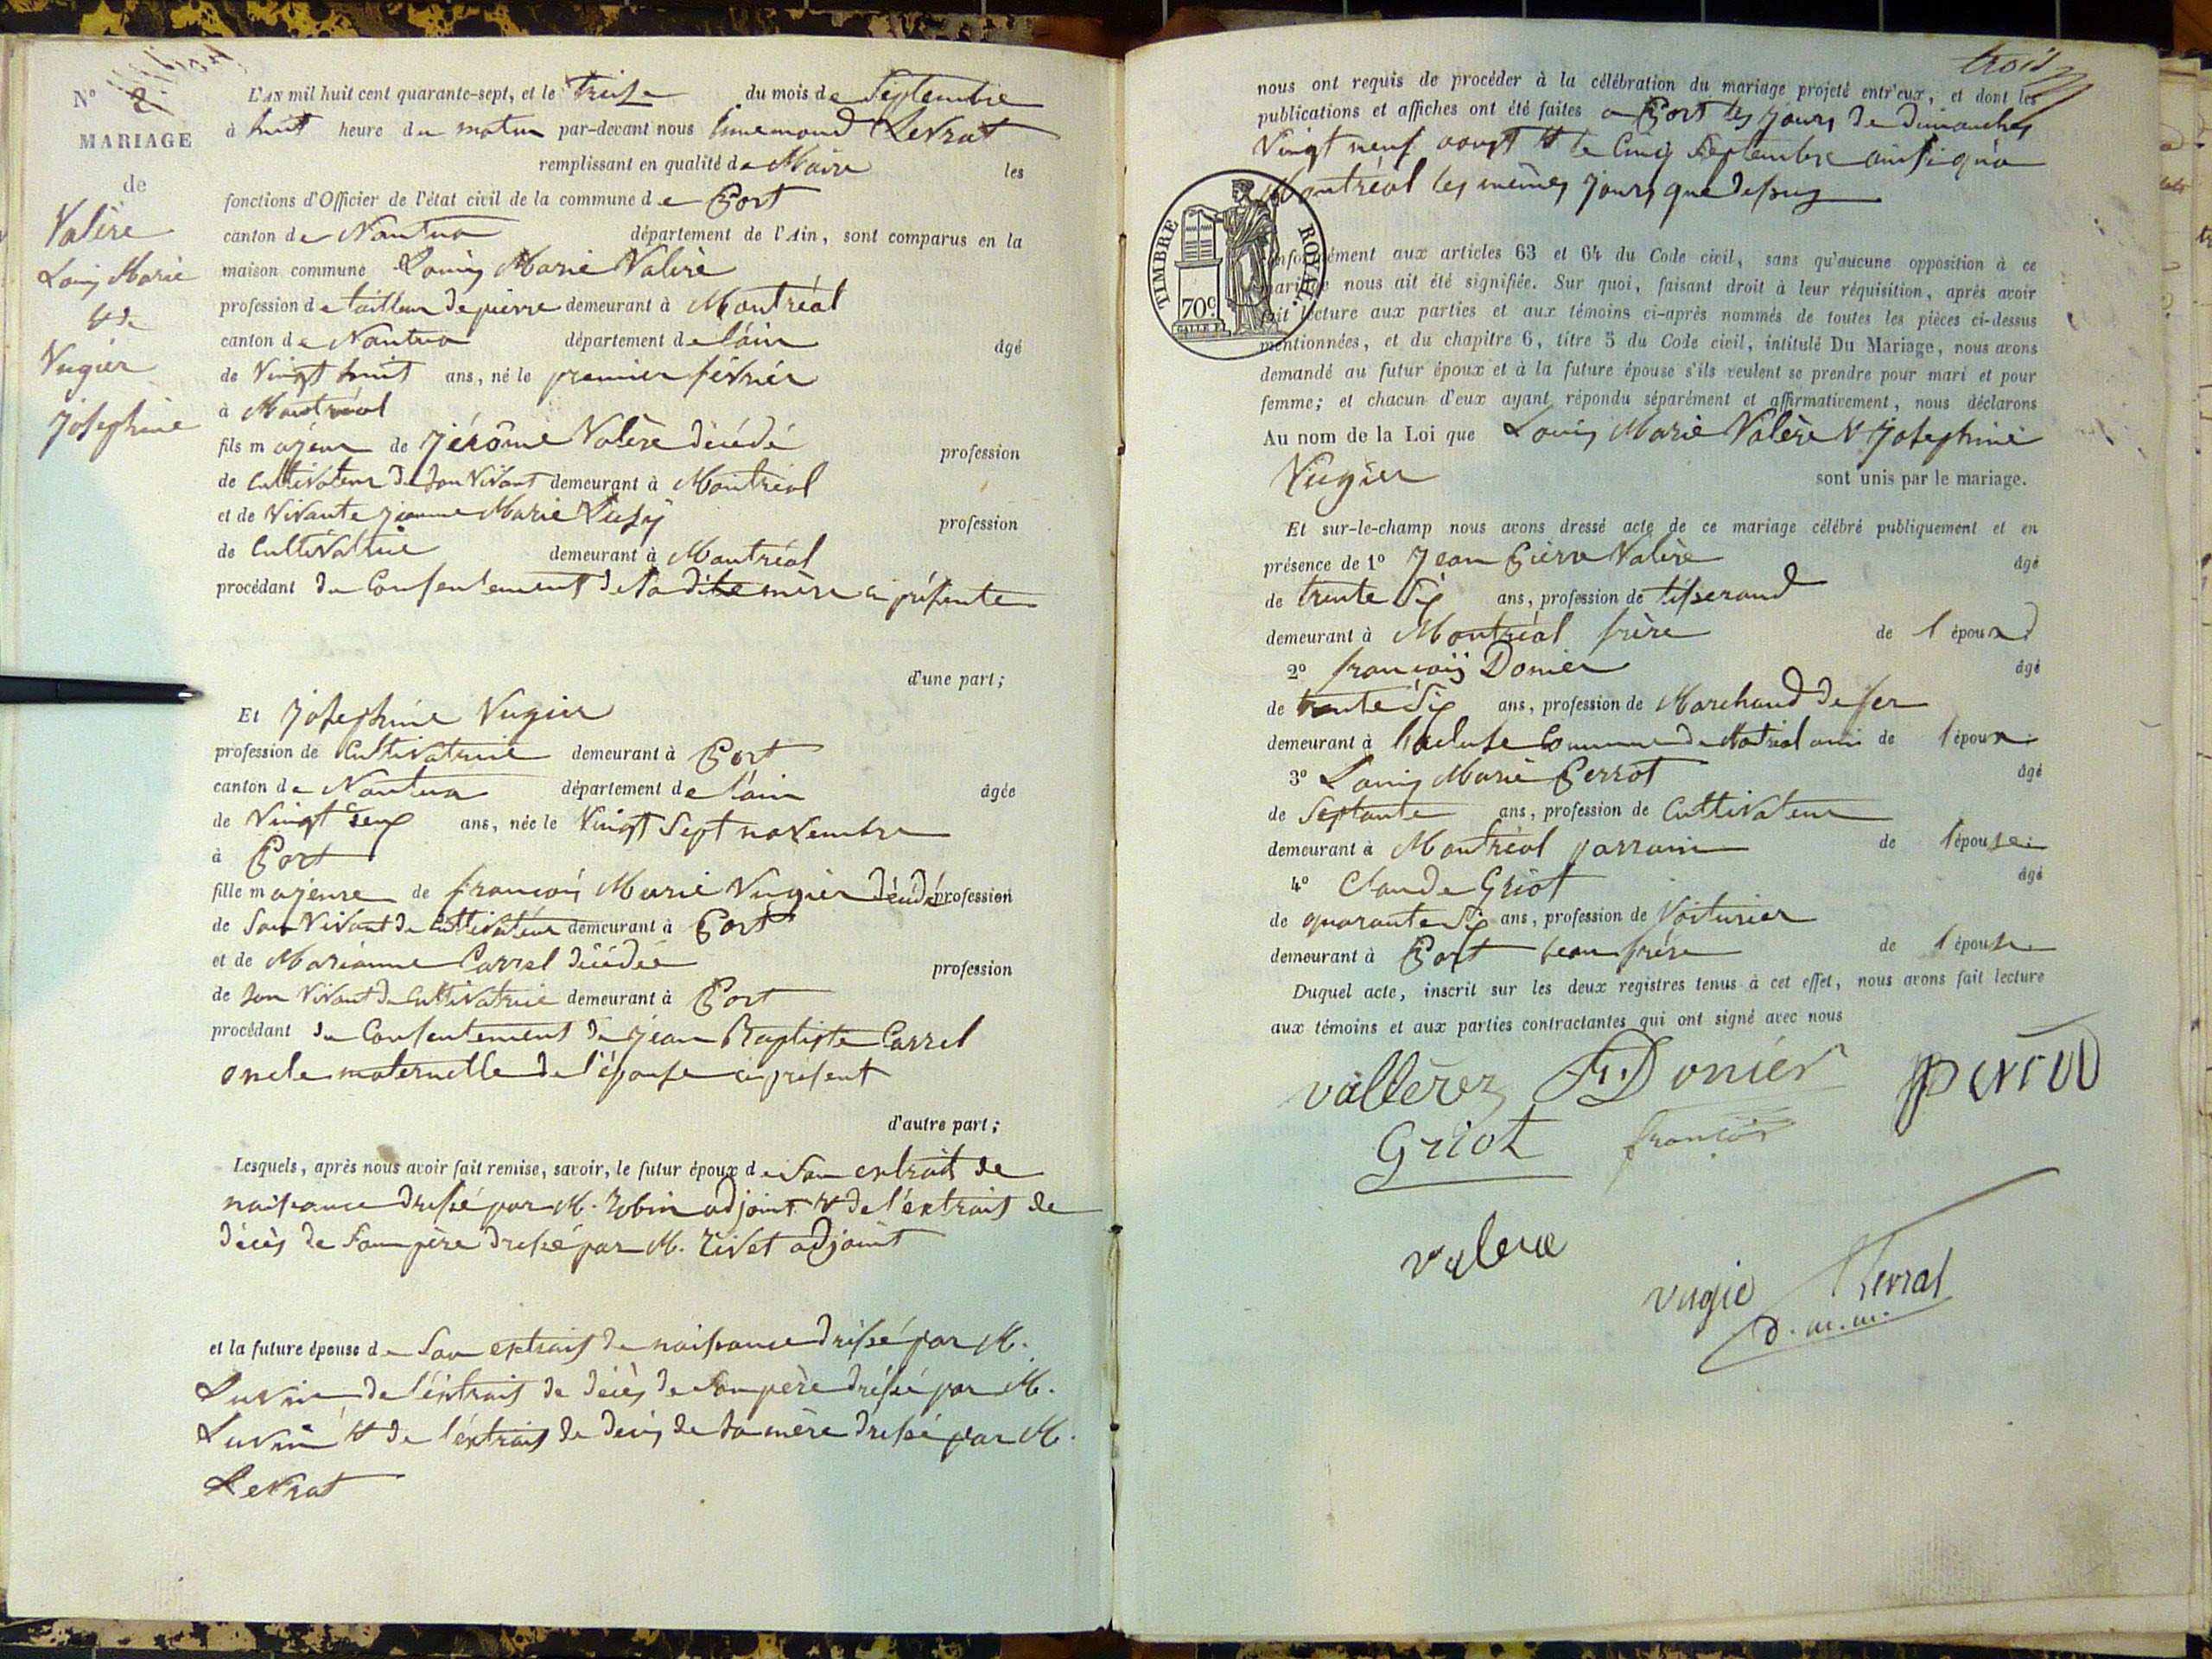 N° 2
MARIAGE
de
Valère
Louis Marie
& de
Vugier
Josephine
L'AN mil huit cent quarante-sept, et le treise du mois de Septembre
à huit heure du matin par-devant nous Ennemond Levrat
remplissant en qualité de Maire les
fonctions d'Officier de l'état civil de la commune de Port
canton de Nantua département de l'Ain, sont comparus en la
maison commune Louis Marie Valère
profession de tailleur de pierre demeurant à Montréal
canton de Nantua département de l'ain âgé
de Vingt huit ans, né le premier février
à Montréal
fils majeur de Jérôme Valère décédé profession
de Cultivateur de son Vivant demeurant à Montréal
et de Vivante jeanne Marie profession
de Cultivatrice demeurant à Montréal
procédant du Consentement de sa dite mère ci présente
d'une part;
Et Josephine Vugier
profession de Cultivatrice demeurant à Port
canton de Nantua département de l'ain âgée
de Vingt Six ans, née le Vingt Sept novembre
à Port
fille majeure de françois Marie Vugier décédé profession
de Son Vivant de Cultivateur demeurant à Port
et de Marianne Carrel décédée profession
de Son Vivant de Cultivatrice demeurant à Port
procédant du Consentement de jean Baptiste Carrel
oncle maternelle de l'épouse ci présent
d'autre part;
Lesquels, après nous avoir fait remise, savoir, le futur époux de Son extrait de
naissance dressé par M. Robin adjoint & de l'extrait de
décès de Son père dressé par M. Rivet adjoint
et la future épouse de Son extrait de naissance dressé par M.
de l'extrait de décès de Son père dressé par M.
& de l'extrait de décès de Sa mère dressé par M.
Levrat
trois
nous ont requis de procéder à la célébration du mariage projeté entr'eux, et dont les
publications et affiches ont été faites a Port les jours de dimanches
Vingt neuf aoust & le Cinq Septembre ainsi qu'a
Montréal les mêmes jours que dessus
TIMBRE ROYAL.
70c
conformément aux articles 63 et 64 du Code civil, sans qu'aucune opposition à ce
mariage nous ait été signifiée. Sur quoi, faisant droit à leur réquisition, après avoir
fait lecture aux parties et aux témoins ci-après nommés de toutes les pièces ci-dessus
mentionnées, et du chapitre 6, titre 5 du Code civil, intitulé Du Mariage, nous avons
demandé au futur époux et à la future épouse s'ils veulent se prendre pour mari et pour
femme; et chacun d'eux ayant répondu séparément et affirmativement, nous déclarons
Au nom de la Loi que Louis Marie Valère & Josephine
Vugier sont unis par le mariage.
Et sur-le-champ nous avons dressé acte de ce mariage célébré publiquement et en
présence de 1° Jean Pierre Valère âgé
de trente Six ans, profession de tisserand
demeurant à Montréal frère de l'époux
2° françois Donier âgé
de trente Six ans, profession de Marchand de fer
demeurant à Commune de Montréal ami de l'époux
3° Louis Marie Perrot âgé
de Septante ans, profession de Cultivateur
demeurant à Montréal parrain de l'épouse
4° Claude Griot âgé
de quarante Six ans, profession de Voiturier
demeurant à Port beau frère de l'épouse
Duquel acte, inscrit sur les deux registres tenus à cet effet, nous avons fait lecture
aux témoins et aux parties contractantes qui ont signé avec nous
vallèrez F. Donier
Griot françois
valere
vugie Levrat
d. m. m.